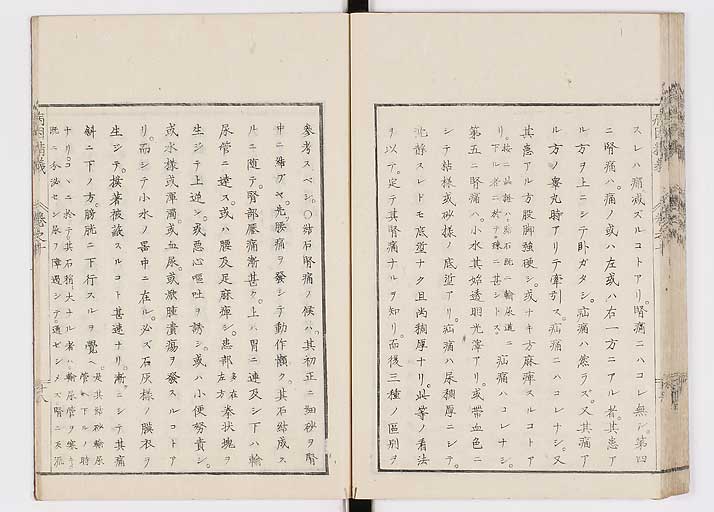 スレハ痛減ズルコトアリ。腎痛ニハコレ無シ。第四
ニ腎痛ハ。痛ノ或ハ左或ハ右一方ニアル者。其患ア
ル方ヲ上ニシテ臥ガタシ。疝痛ハ然ラズ。又其痛ア
ル方ノ睾丸時アリテ牽引ス。疝痛ニハコレナシ。又
其患アル方股脚強硬シ。或ナキ方麻痺スルコトア
リ。疝痛ハコレナシ。
第五ニ腎痛ハ。小水其始透明光澤アリ。或帶血色ニ
シテ粘様或砂様ノ底アリ。疝痛ハ尿稠厚ニシテ。
靜スレドモ底ナク且尚稠厚ナリ。此等ノ看法
ヲ以テ。定テ其腎痛ナルヲ知リ。而後三種ノ區別ヲ
參考スベシ。○結石腎痛ノ候ハ。其初正ニ細砂ヲ腎
中ニ結グヤ。先腰痛ヲ發シテ動作懶ク。其石結成ス
ルニ隨テ。腎部壓痛漸甚ク。上ハ胃ニ連及シ下ハ輸
尿管ニ達ス。或ハ腰及足麻痺シ。患部多在左方拳状塊ヲ
生ジテ上逆シ。或惡心嘔吐ヲ誘シ。或ハ小便努責シ。
或水様或渾濁或血尿。或潰瘍ヲ發スルコトア
リ。而シテ小水ノ器中ニ在ル。必ズ石灰様ノ膜衣ヲ
生ジテ。接著被蔵スルコト甚速ナリ。漸ニシテ其痛
斜ニ下ノ方。膀胱ニ下行スルヲ覺ヘ。是其結砂輸尿管ヲ下ルノ時
ナリ。コヽニ於テ其石稍大ナル者ハ輸尿管ヲ塞キ
胱ニ分泌セン尿ヲ障遏シテ。通ゼシメズ腎ニ反流
病因精義
巻之十
十八